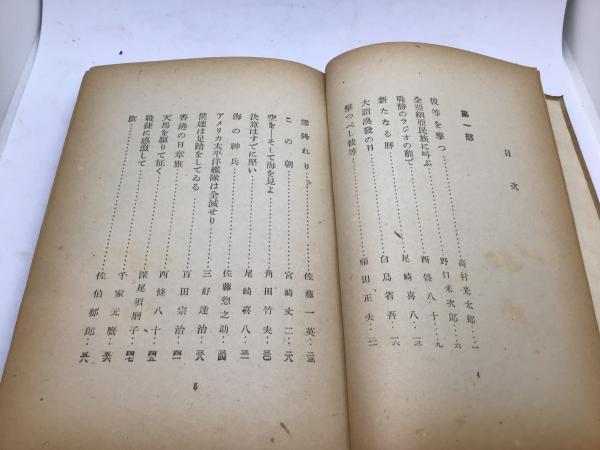 目次
第一部
彼等を撃つ……高村光太郎‥二
全亜細亜民族に叫ぶ……野口米次郎‥六
戦勝のラジオの前で……西條八十‥九
新たなる暦……尾崎喜八‥一三
大詔渙發の日……白鳥省吾‥一六
撃つべし彼等……福田正夫‥二一
4
霜降れり……佐藤一英‥二三
この朝……宮崎丈二‥二八
空を―そして海を見よ……角田竹夫‥三〇
決意はすでに堅い……尾崎喜八‥三一
海の神兵……佐藤惣之助‥三四
アメリカ太平洋艦隊は全滅せり……三好達治‥三八
僕達は足踏をしてゐる……百田宗治‥四一
香港の日章旗……西條八十‥四五
天馬を駆りて征く……深尾須磨子‥四七
戦捷に感激して……千家元麿‥五六
旗……佐伯郁郎‥五八
5